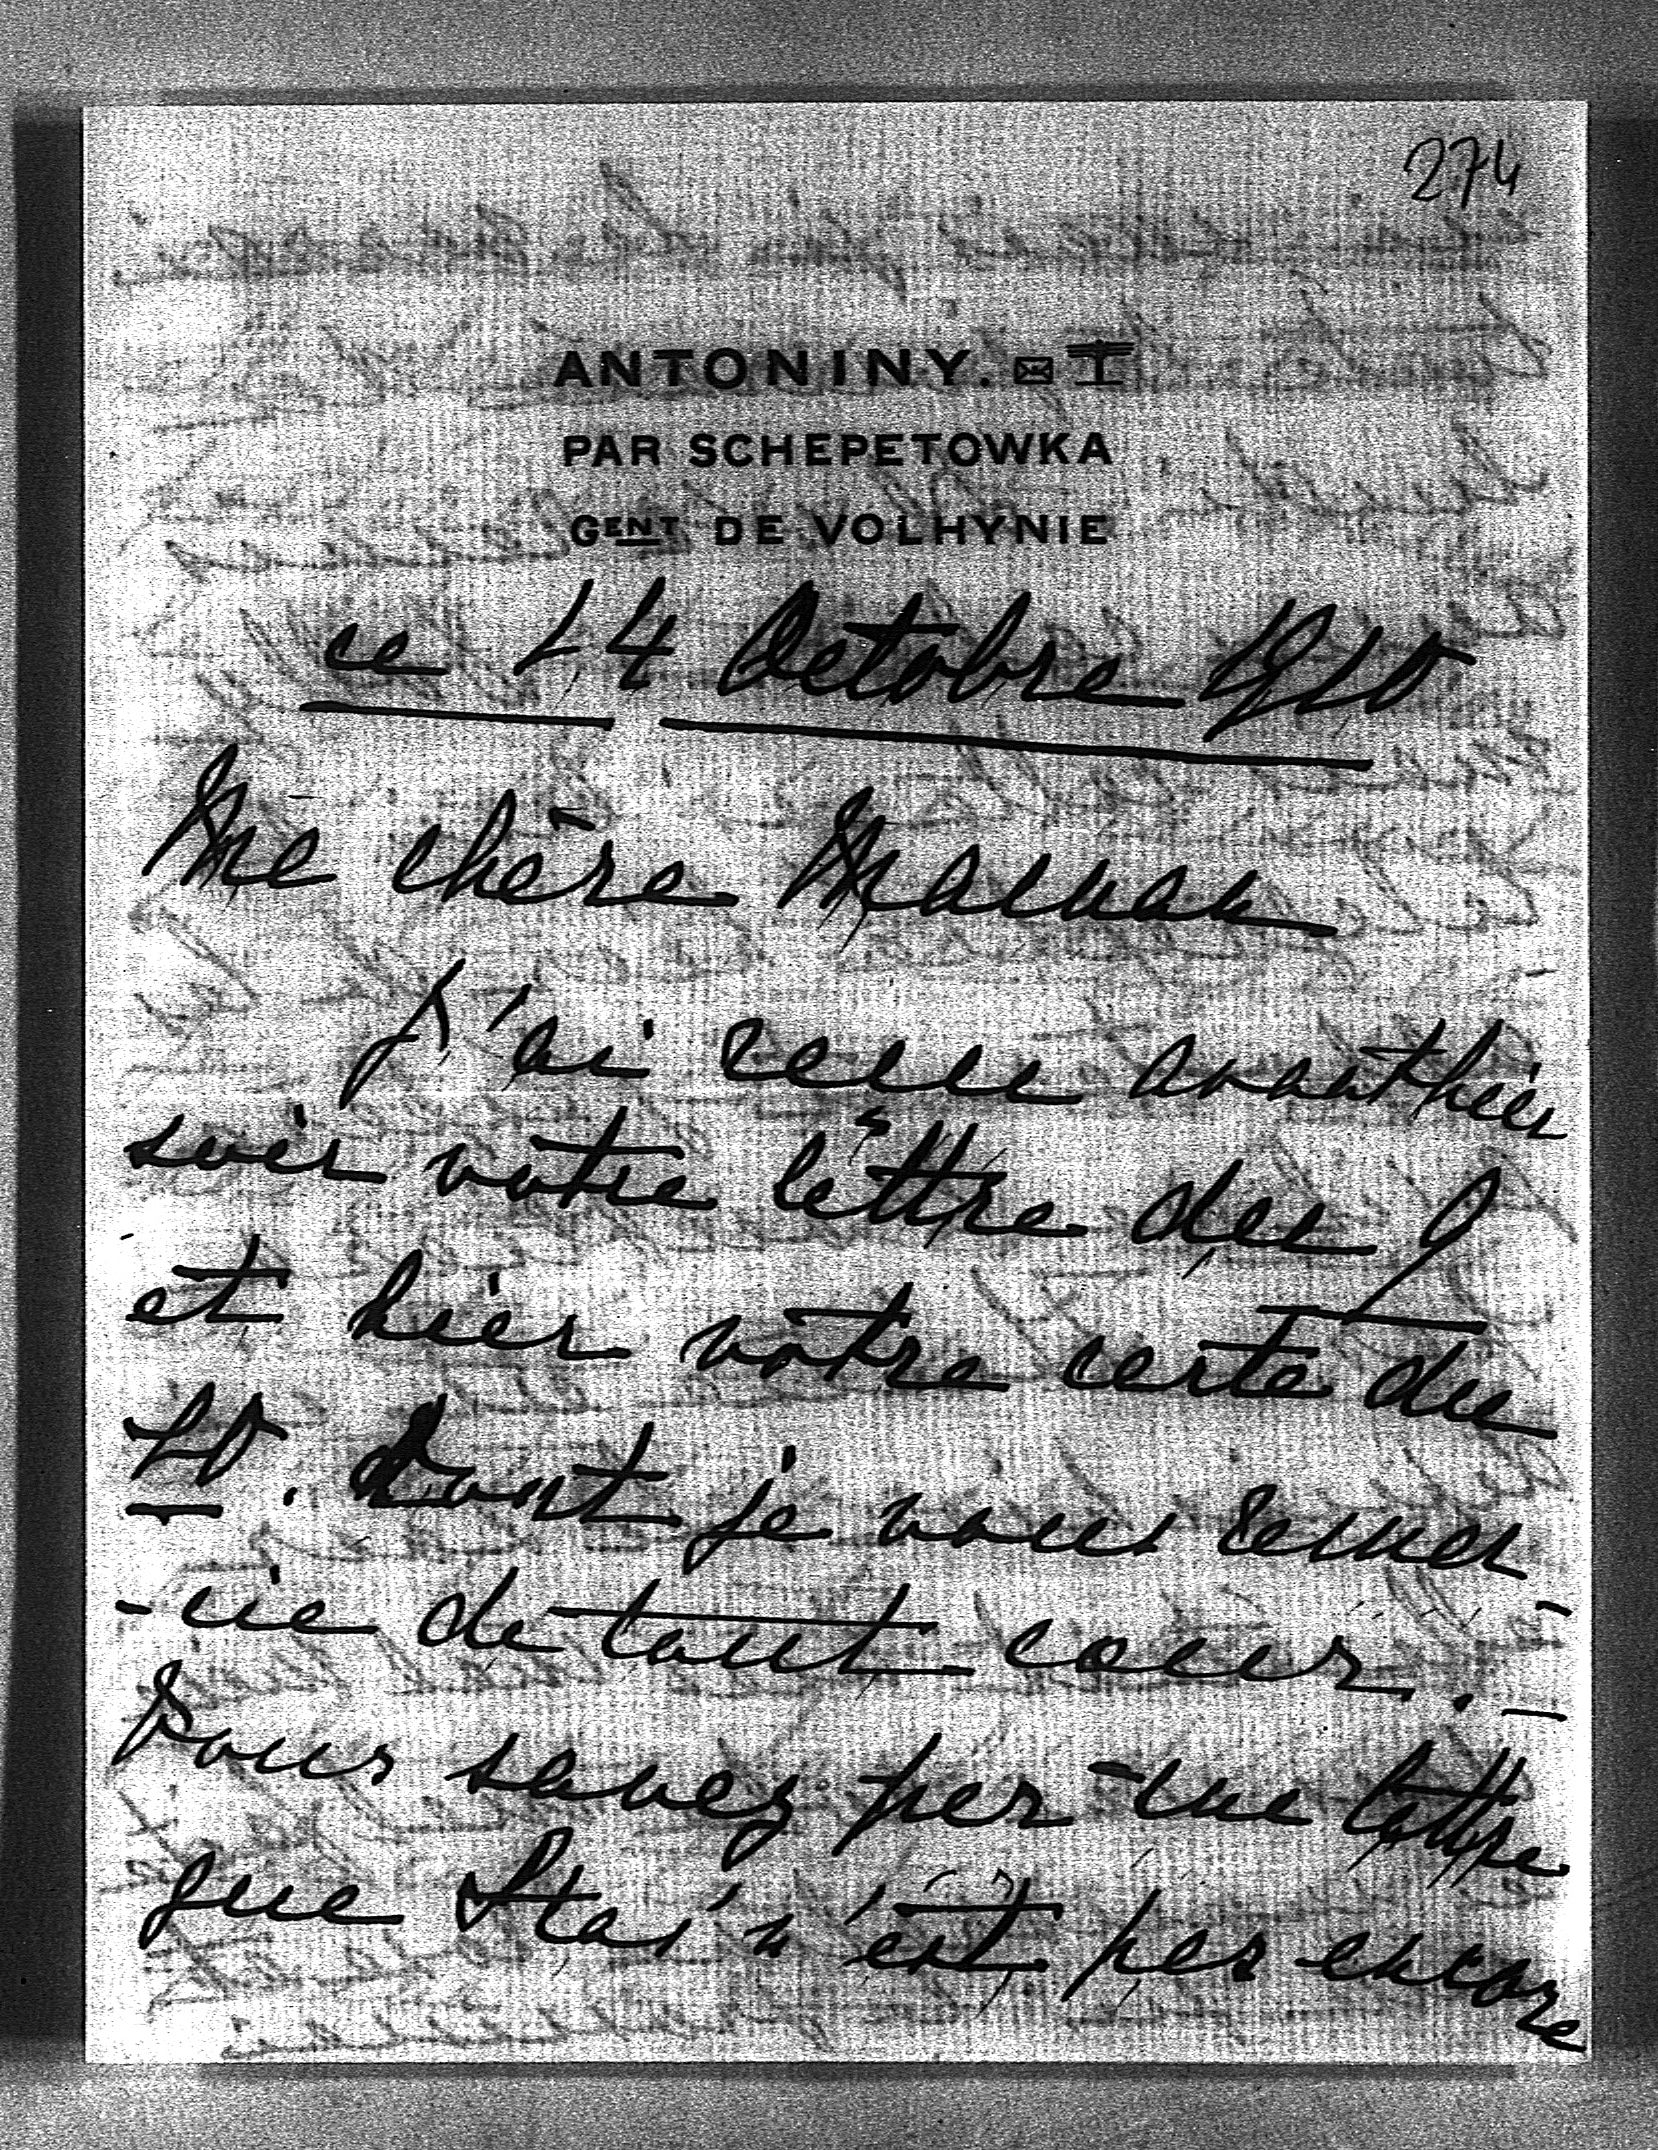 274
ANTONINY.
PAR SCHEPETOWKA
GENT DE VOLHYNIE
ce 14 Octobre 1910
Ma chère Maman
J'ai reçue avanthier
soir votre lettre du 7
et hier votre carte du
10. Dont je vous remer-
-cie de tout coeur. —
Vous savez par ma lettre
que Stas' n'est pas encore